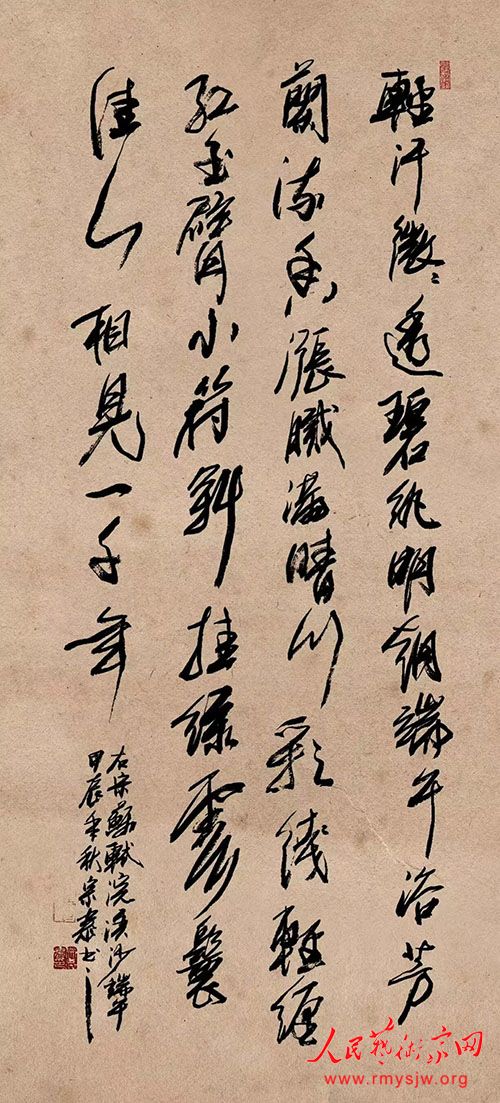 輕汗微〻透碧紈明朝端午浴芳
蘭流香漲膩滿晴川彩线輕纏
紅玉臂小符斜挂綠雲鬟
佳人相見一千年
右宋蘇軾浣溪沙端午
甲辰年秋宗书
人民藝術家网
www.rmysjw.org